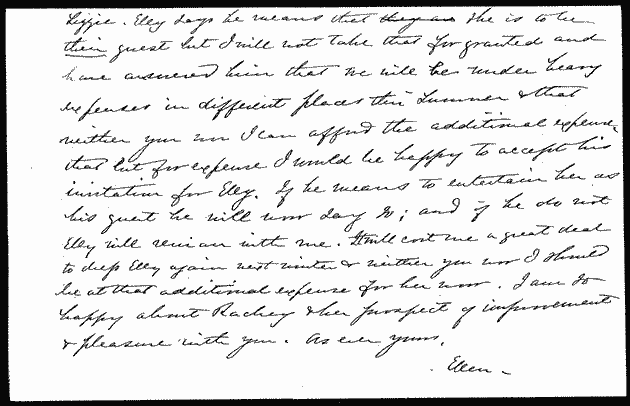 Lizzie. Elly says he means that they are she is to be
their guest but I will not take that for granted and
have answered him that we will be under heavy
expenses in different places this Summer & that
neither you nor I can afford the additional expense,
that but for expense I would be happy to accept his
invitation for Elly. If he means to entertain her as
his guest he will now say so; and if he do not
Elly will remain with me. It will cost me a great deal
to dress Elly again next winter & neither you nor I should
be at that additional expense for her now. I am so
happy about Rachey & her prospect of improvement
& pleasure with you. As ever yours,
Ellen